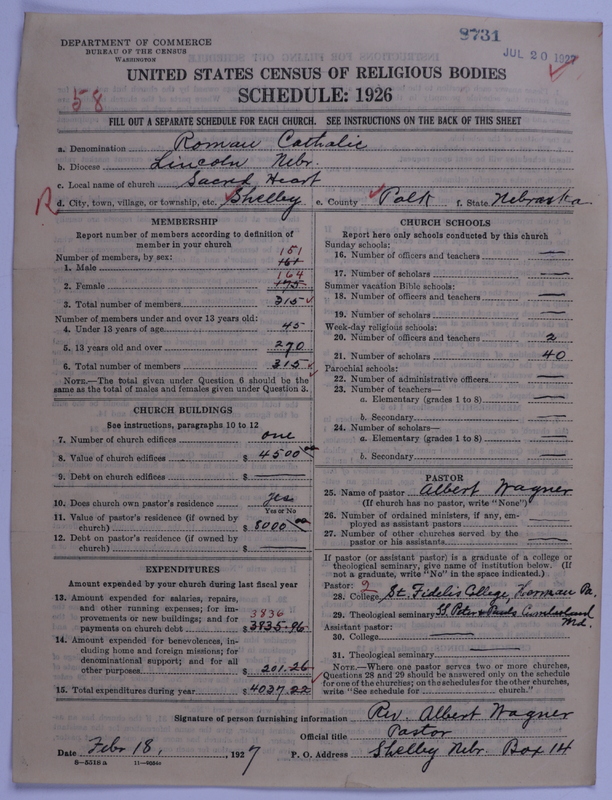 DEPARTMENT OF COMMERCE
BUREAU OF THE CENSUS
WASHINGTON
8731
JUL 20 1927
UNITED STATES CENSUS OF RELIGIOUS BODIES
SCHEDULE: 1926
58
FILL OUT A SEPARATE SCHEDULE FOR EACH CHURCH. SEE INSTRUCTIONS ON THE BACK OF THIS SHEET
a. Denomination Roman Catholic
b. Diocese Lincoln Nebr.
c. Local name of church Sacred Heart
R d. City, town, village, or township, etc. Shelby e. County Polk f. State Nebraska
MEMBERSHIP
Report number of members according to definition of
member in your church
Number of members, by sex: 151
1. Male 161
164
2. Female 175
3. Total number of members 315
Number of members under and over 13 years old:
4. Under 13 years of age 45
5. 13 years old and over 270
6. Total number of members 315
NOTE.—The total given under Question 6 should be the
same as the total of males and females given under Question 3.
CHURCH BUILDINGS
See instructions, paragraphs 10 to 12
7. Number of church edifices one
8. Value of church edifices $ 4500 00
9. Debt on church edifices $ —
10. Does church own pastor's residence yes
Yes or No
11. Value of pastor's residence (if owned by
church) $ 8000 00
12. Debt on pastor's residence (if owned by
church) $ —
EXPENDITURES
Amount expended by your church during last fiscal year
13. Amount expended for salaries, repairs,
and other running expenses; for im-
provements or new buildings; and for 3836
payments on church debt $ 3835.96
14. Amount expended for benevolences, in-
cluding home and foreign missions; for
denominational support; and for all
other purposes $ 201.26
15. Total expenditures during year $ 4037.22
CHURCH SCHOOLS
Report here only schools conducted by this church
Sunday schools:
16. Number of officers and teachers —
17. Number of scholars —
Summer vacation Bible schools:
18. Number of officers and teachers —
19. Number of scholars —
Week-day religious schools:
20. Number of officers and teachers 2
21. Number of scholars 40
Parochial schools:
22. Number of administrative officers —
23. Number of teachers—
a. Elementary (grades 1 to 8) —
b. Secondary —
24. Number of scholars—
a. Elementary (grades 1 to 8) —
b. Secondary —
PASTOR
25. Name of pastor Albert Wagner
(If church has no pastor, write "None")
26. Number of ordained ministers, if any, em-
ployed as assistant pastors —
27. Number of other churches served by the
pastor or his assistants —
If pastor (or assistant pastor) is a graduate of a college or
theological seminary, give name of institution below. (If
not a graduate, write "No" in the space indicated.)
Pastor: 2
28. College St. Fidelis College, Herman Pa.
29. Theological seminary SS. Peter & Pauls Cumberland
Md.
Assistant pastor:
30. College —
31. Theological seminary —
NOTE.—Where one pastor serves two or more churches,
Questions 28 and 29 should be answered only on the schedule
for one of the churches; on the schedules for the other churches,
write "See schedule for church."
Signature of person furnishing information Rev. Albert Wagner
Official title Pastor
Date Febr 18, 1927 P. O. Address Shelby Nebr. Box 14
8—5516 a